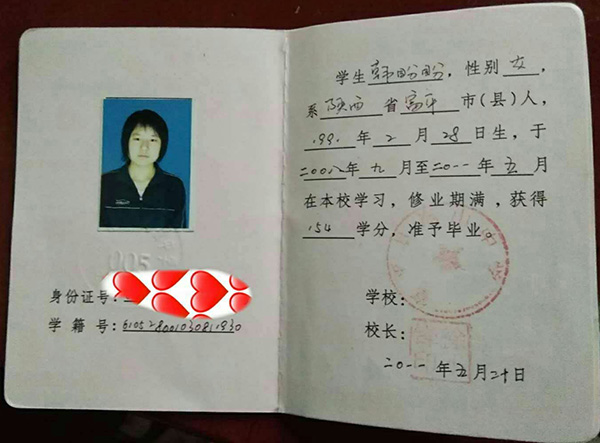 身份证号:
学 籍 号:610528001030811930
学生韩盼盼,性别女,
系陕西省富平市(县)人,
1991年2月28日生,于
二00八年九月至二0一一年五月
在本校学习,修业期满,获得
154学分,准予毕业。
学校:
校长:
二0一一年五月二十日